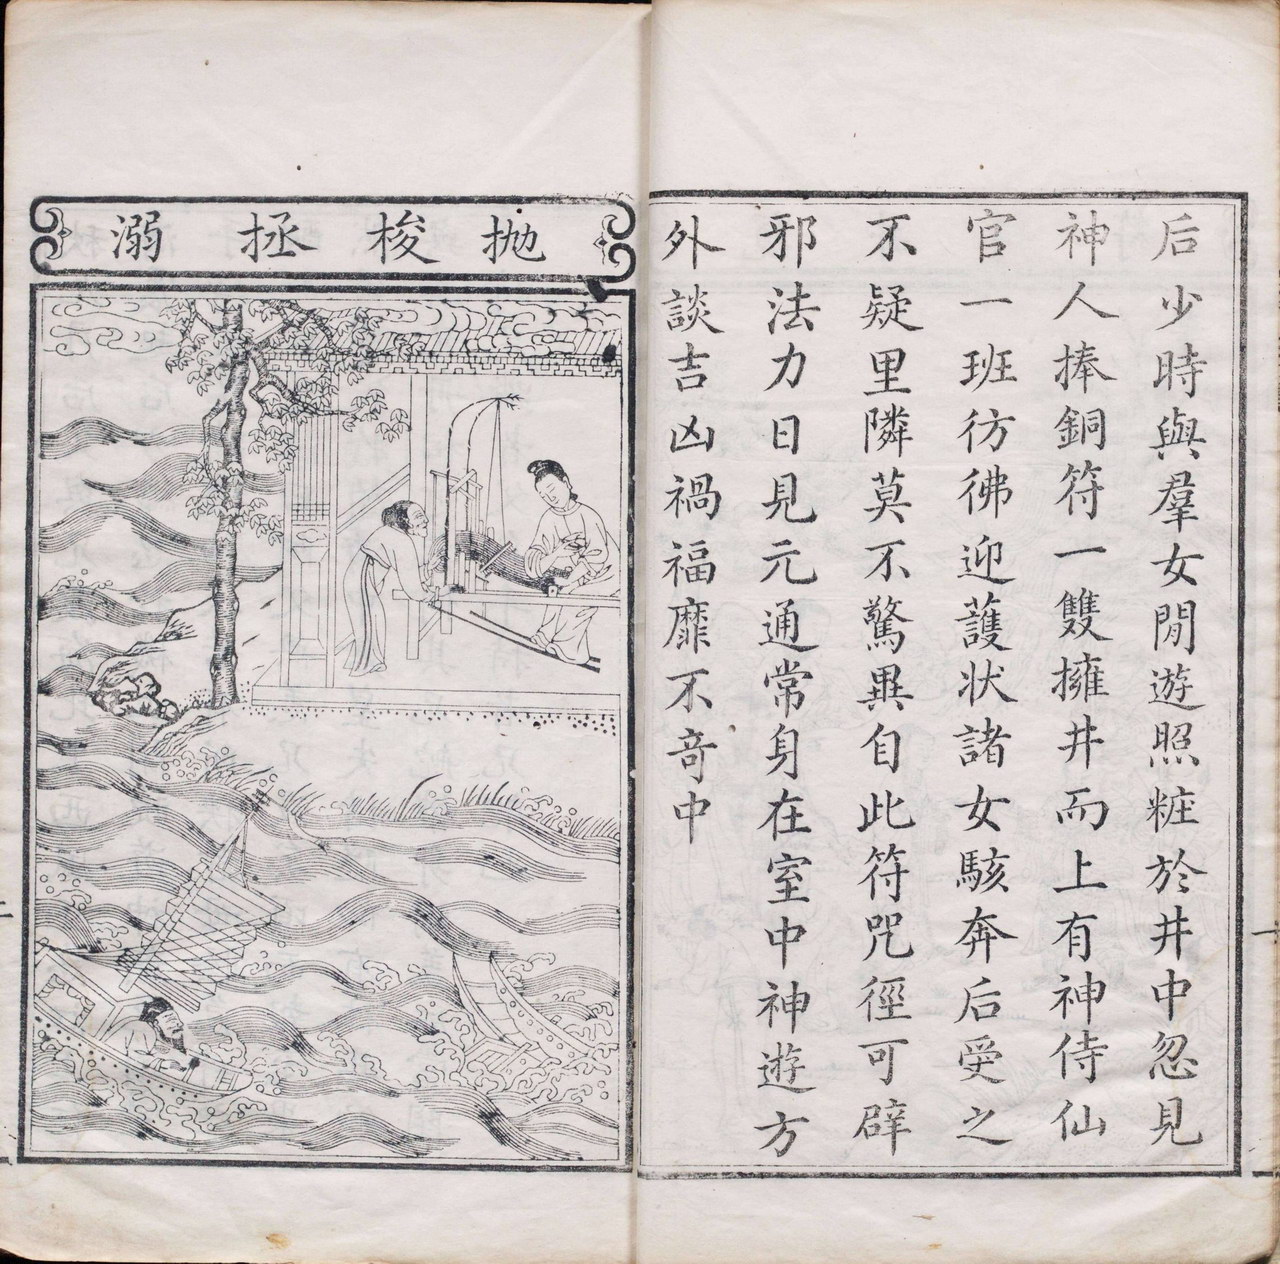 后少時與羣女閒遊照粧於井中忽見
神人捧銅符一雙擁井而上有神侍仙
官一班彷彿迎護状諸女駭奔后受之
不疑里隣莫不驚異自此符咒徑可辟
邪法力日見元通常身在室中神遊方
外談吉凶禍福靡不竒中
抛梭拯溺